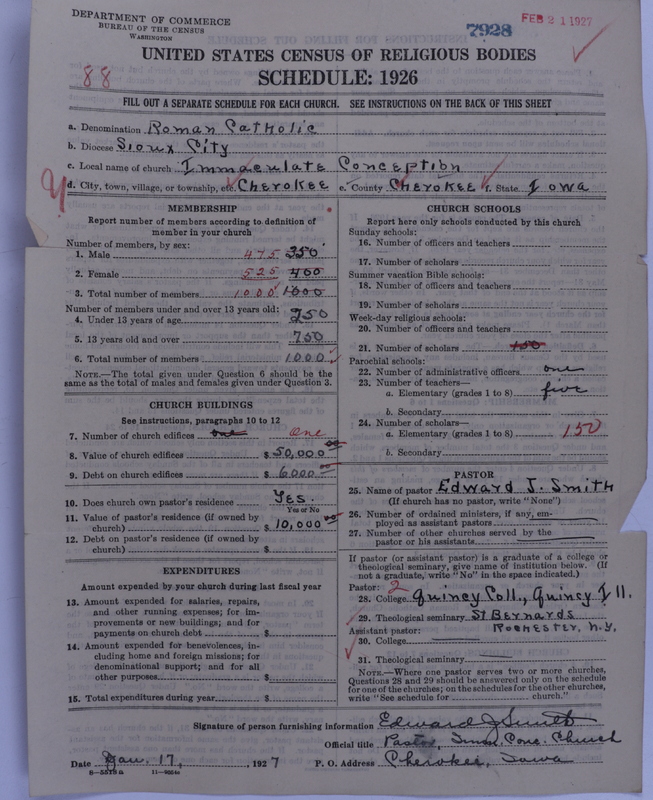 DEPARTMENT OF COMMERCE
BUREAU OF THE CENSUS
WASHINGTON
7928
FEB 21 1927
88
UNITED STATES CENSUS OF RELIGIOUS BODIES
SCHEDULE: 1926
FILL OUT A SEPARATE SCHEDULE FOR EACH CHURCH. SEE INSTRUCTIONS ON THE BACK OF THIS SHEET
a. Denomination Roman Catholic
b. Diocese Sioux City
c. Local name of church Immaculate Conception
d. City, town, village, or township, etc. Cherokee e. County Cherokee f. State Iowa
MEMBERSHIP
Report number of members according to definition of member in your church
Number of members, by sex:
1. Male 475 350
2. Female 525 400
3. Total number of members 1000 1000
Number of members under and over 13 years old:
4. Under 13 years of age 250
5. 13 years old and over 750
6. Total number of members 1000
NOTE.—The total given under Question 6 should be the same as the total of males and females given under Question 3.
CHURCH BUILDINGS
See instructions, paragraphs 10 to 12
7. Number of church edifices one One
8. Value of church edifices $ 50,000 00
9. Debt on church edifices $ 6000 00
10. Does church own pastor's residence Yes.
Yes or No
11. Value of pastor's residence (if owned by church) $ 10,000 00
12. Debt on pastor's residence (if owned by church) $
EXPENDITURES
Amount expended by your church during last fiscal year
13. Amount expended for salaries, repairs, and other running expenses; for improvements or new buildings; and for payments on church debt $
14. Amount expended for benevolences, including home and foreign missions; for denominational support; and for all other purposes $
15. Total expenditures during year $
CHURCH SCHOOLS
Report here only schools conducted by this church
Sunday schools:
16. Number of officers and teachers
17. Number of scholars
Summer vacation Bible schools:
18. Number of officers and teachers
19. Number of scholars
Week-day religious schools:
20. Number of officers and teachers
21. Number of scholars 150
Parochial schools:
22. Number of administrative officers one
23. Number of teachers—
a. Elementary (grades 1 to 8) five
b. Secondary
24. Number of scholars—
a. Elementary (grades 1 to 8) 150
b. Secondary
PASTOR
25. Name of pastor Edward J. Smith
(If church has no pastor, write "None")
26. Number of ordained ministers, if any, employed as assistant pastors
27. Number of other churches served by the pastor or his assistants
If pastor (or assistant pastor) is a graduate of a college or theological seminary, give name of institution below. (If not a graduate, write "No" in the space indicated.)
Pastor: 2
28. College Quincy Coll., Quincy Ill.
29. Theological seminary St Bernards
Rochester, N.Y.
Assistant pastor:
30. College
31. Theological seminary
NOTE.—Where one pastor serves two or more churches, Questions 28 and 29 should be answered only on the schedule for one of the churches; on the schedules for the other churches, write "See schedule for church."
Signature of person furnishing information Edward J Smith
Official title Pastor, Imm. Conc. Church
Date Jan. 17, 1927 P. O. Address Cherokee, Iowa